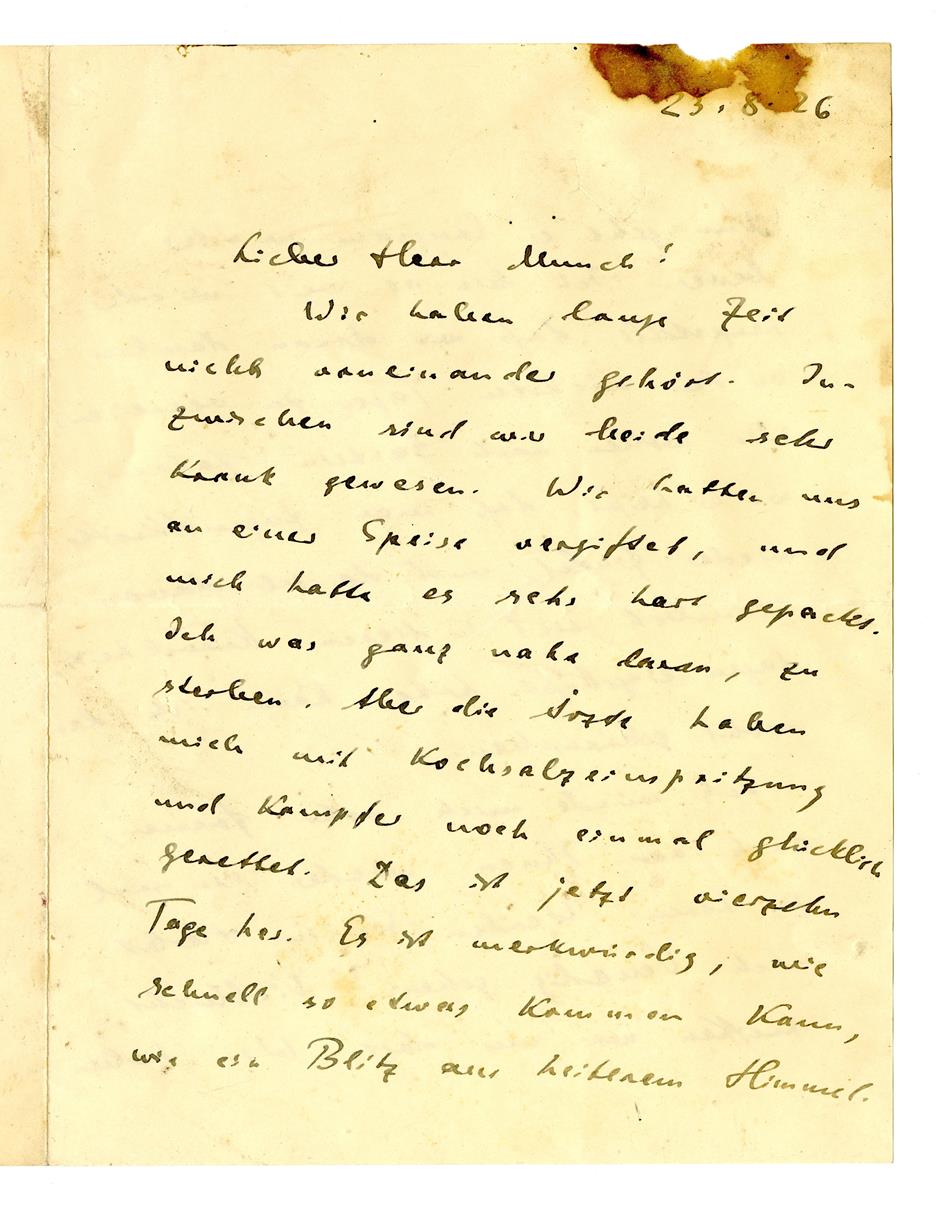 23.8.26
Lieber Herr Munch!
Wir haben lange Zeit
nichts voneinander gehört. In-
zwischen sind wir beide sehr
krank gewesen. Wir hatten uns
an einer Speise vergiftet, und
mich hatte es sehr hart gepackt.
Ich war ganz nahe daran, zu
sterben. Aber die Ärzte haben
mich mit Kochsalzeinspritzung
und Kampfer noch einmal glücklich
gerettet. Das ist jetzt vierzehn
Tage her. Es ist merkwürdig, wie
schnell so etwas kommen kann,
wie ein Blitz aus heiterem Himmel.